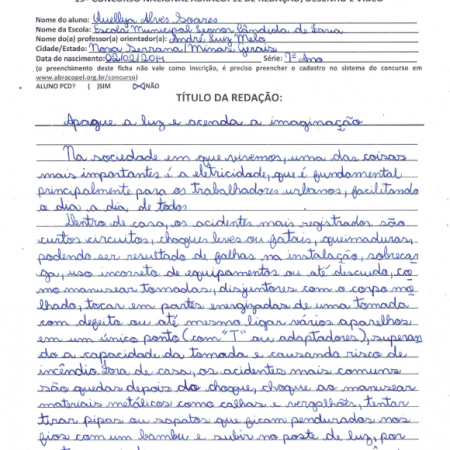 15º CONCURSO NACIONAL ABRACOPEL DE REDAÇÃO, DESENHO E VÍDEO
Nome do aluno: Alves Soares
Nome da Escola: Escola Municipal Leonor Cândida de Faria
Nome do(a) professor(a) orientador(a): André Luiz Melo
Cidade/Estado: Nova Serrana/Minas Gerais
Data de nascimento: 02/02/2011 Série: 7º Ano
(o preenchimento deste ficha não vale como inscrição, é preciso preencher o cadastro no sistema do concurso em
www.abracopel.org.br/concurso)
ALUNO PCD? ( )SIM (X)NÃO
TÍTULO DA REDAÇÃO:
Apague a luz e acenda a imaginação
Na sociedade em que vivemos, uma das coisas
mais importantes é a eletricidade, que é fundamental
principalmente para os trabalhadores urbanos, facilitando
o dia a dia de todos.
Dentro de casa, os acidentes mais registrados são
curtos circuitos, choques leves ou fatais, queimaduras,
podendo ser resultado de falhas na instalação, sobrecar
ga, uso incorreto de equipamentos ou até descuido, co
mo manusear tomadas, disjuntores com o corpo mo
lhado, tocar em partes energizadas de uma tomada
com defeito ou até mesmo ligar vários aparelhos
em um único ponto (com "T" ou adaptadores), superan
do a capacidade da tomada e causando risco de
incêndio. Fora de casa, os acidentes mais comuns
são quedas depois do choque, choque ao manusear
materiais metálicos como calhas e vergalhões, tentar
tirar pipas ou sapatos que ficam pendurados nos
fios com um bambu e subir no poste de luz, por